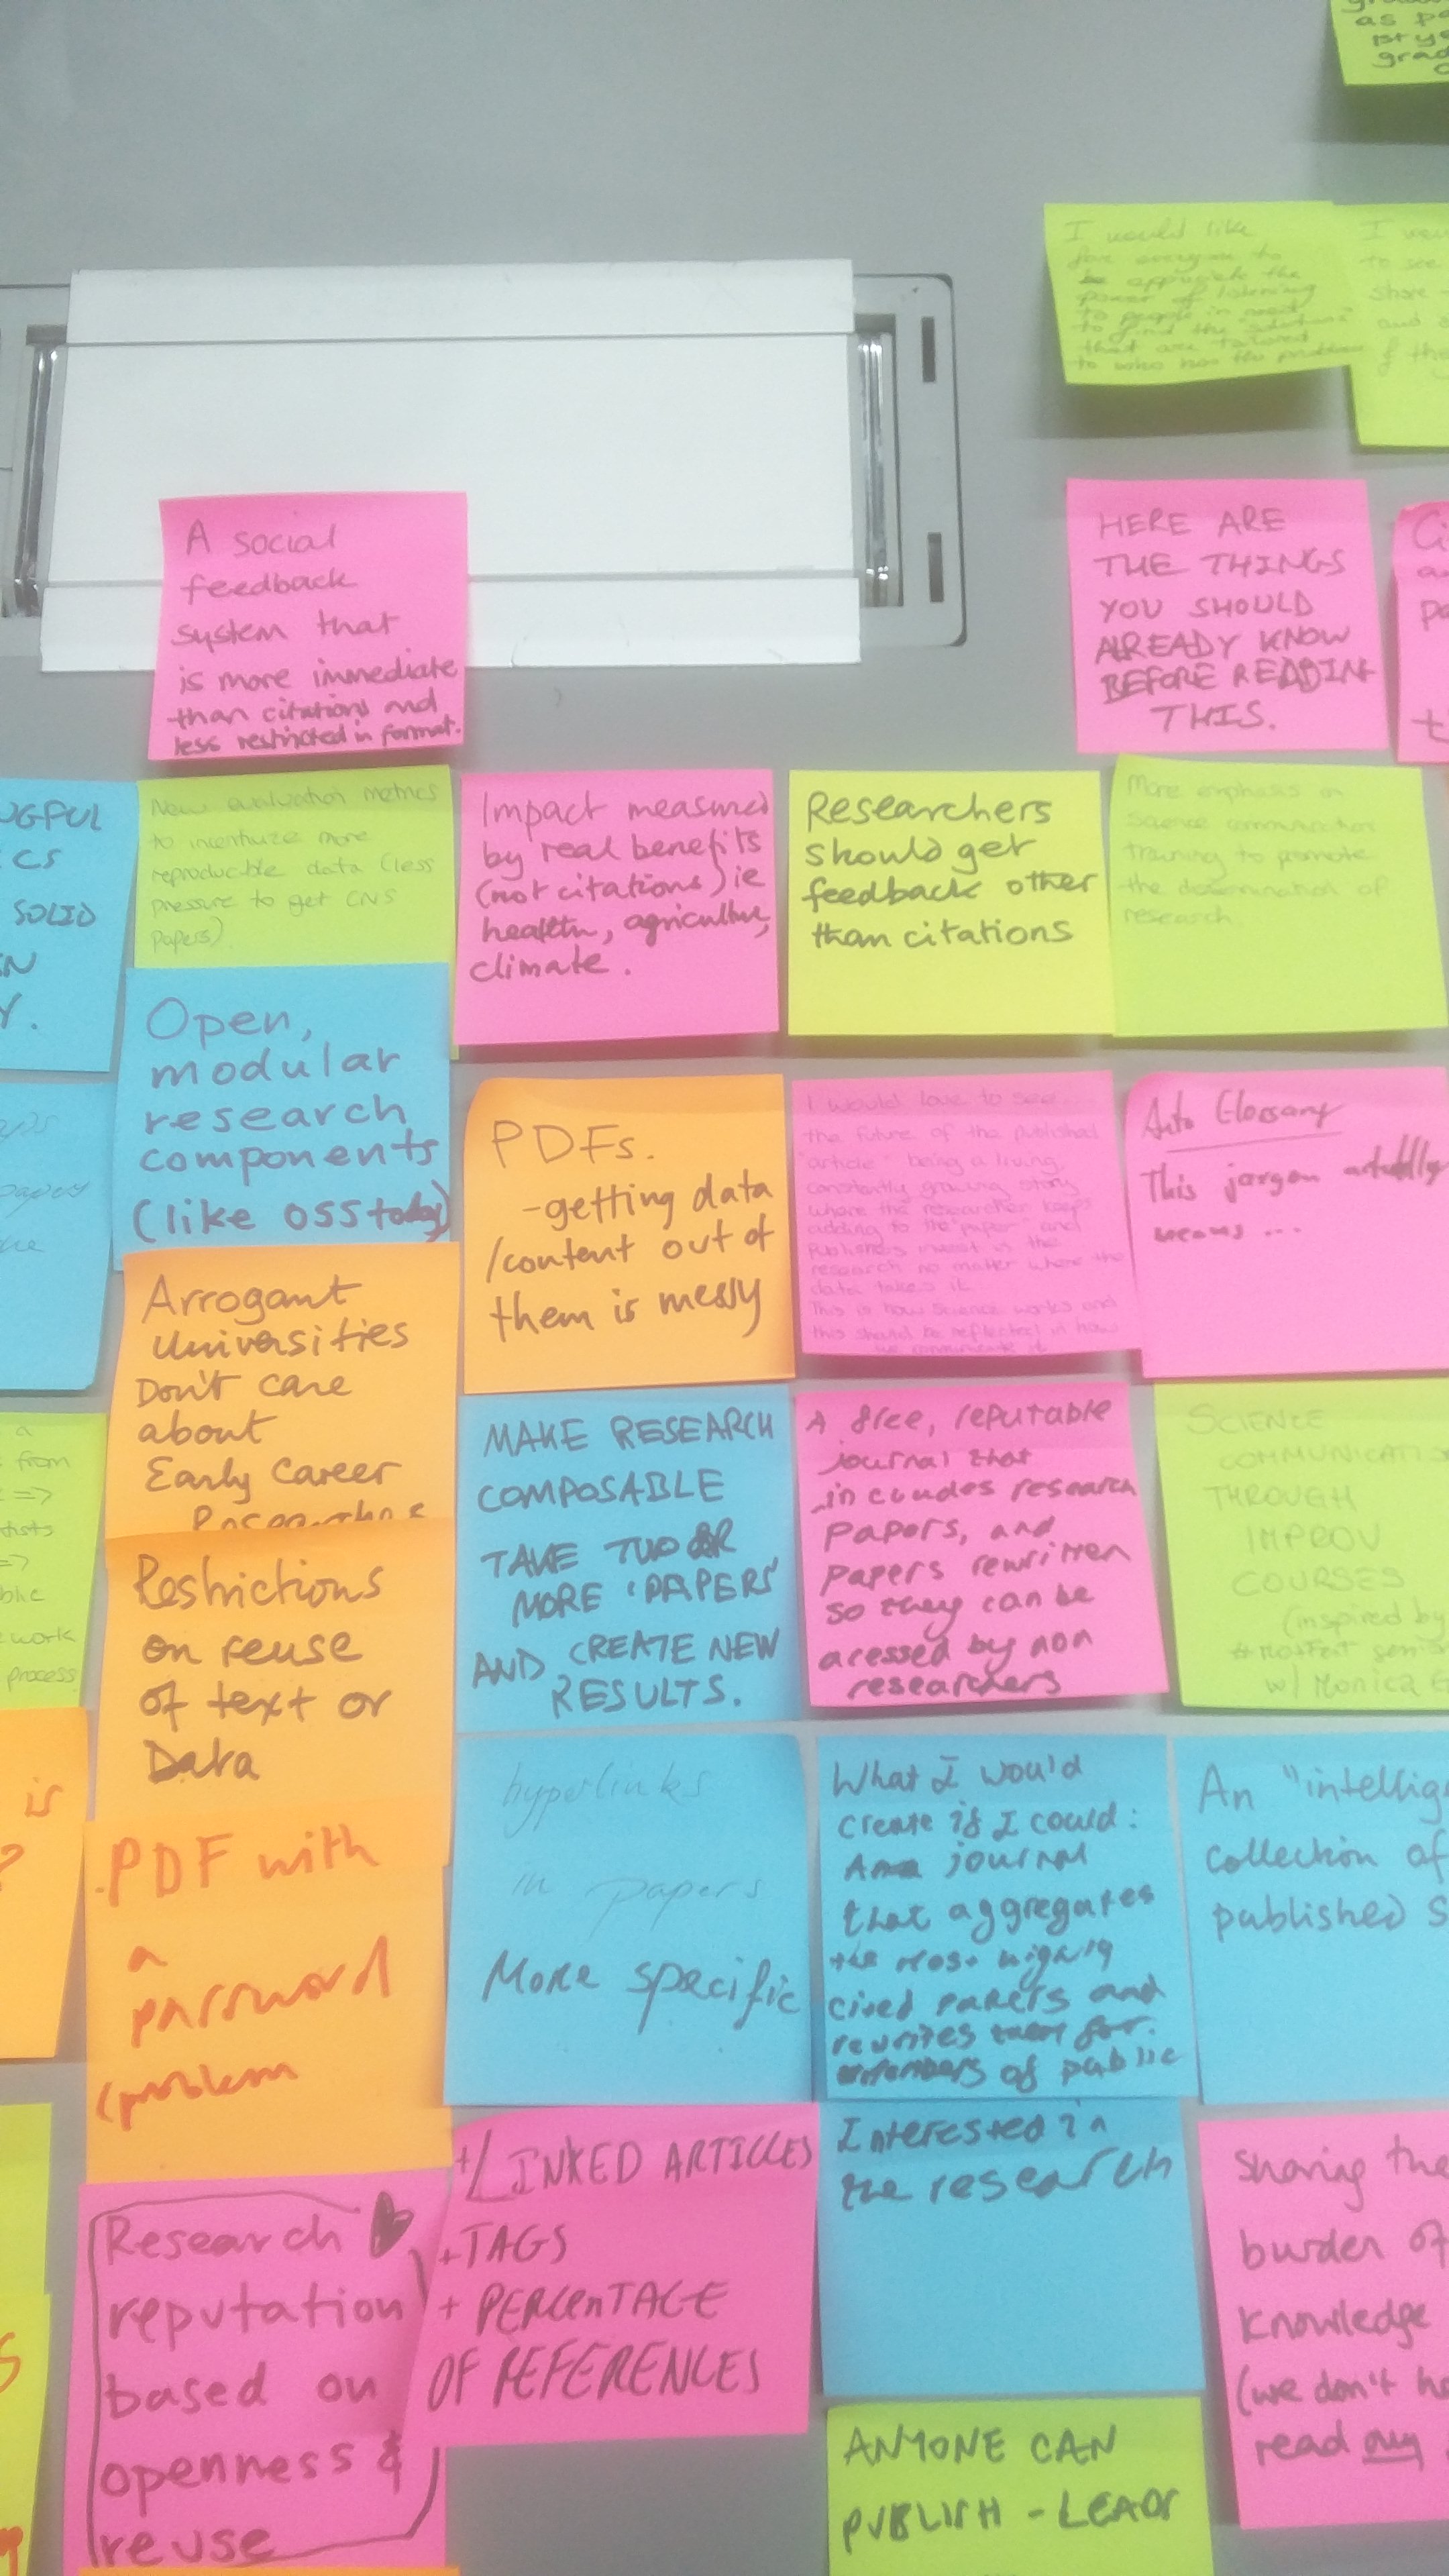 as
I would like
for everyone to
be appreciate the
power of listening
to people in need
to find the solutions
that are tailored
to who has the problem
to see
share
and
f the
A social
feedback
system that
is more immediate
than citations and
less restricted in format.
HERE ARE
THE THINGS
YOU SHOULD
ALREADY KNOW
BEFORE READING
THIS.
New evaluation metrics
to incentivize more
reproducible data (less
pressure to get CNS
papers)
Impact measured
by real benefits
(not citations) ie
health, agriculture,
climate.
Researchers
should get
feedback other
than citations
More emphasis on
science communication
training to promote
the dissemination of
research
SOLID
Open,
modular
research
components
(like OSS today)
PDFs.
-getting data
/content out of
them is messy
I would love to see....
the future of the published
"article" being a living,
constantly growing story
where the researcher keeps
adding to the "paper" and
publishers invest in the
research no matter where the
data takes it.
This is how science works and
this should be reflected in how
we communicate it
Auto Glossary
This jargon actually
means ...
Arrogant
Universities
Don't care
about
Early Career
MAKE RESEARCH
COMPOSABLE
TAKE TWO OR
MORE 'PAPERS'
AND CREATE NEW
RESULTS.
A free, reputable
journal that
includes research
papers, and
papers rewritten
so they can be
acessed by non
researchers
SCIENCE
THROUGH
IMPROV
COURSES
(inspired by
w/ Monica
from
work
process
Restrictions
on reuse
of text or
Data
hyperlinks
in papers
More specific
What I would
create if I could:
A journal
that aggregates
the most highly
cited papers and
rewrites them for
members of public
An
collection of
published
is
?
PDF with
a
password
(problem
+LINKED ARTICLES
+TAGS
+ PERCENTAGE
OF REFERENCES
Interested in
the research
Sharing the
burden of
knowledge
(we don't
read any
Research
reputation
based on
openness &
reuse
ANYONE CAN
PUBLISH - LEADS